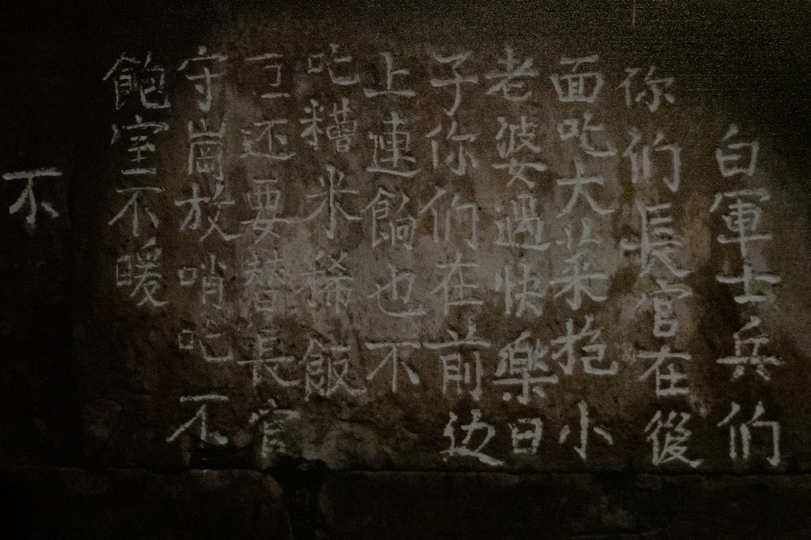 白軍士兵们
你们長官在後
面吃大菜抱小
老婆過快樂日
子你们在前边
上連餉也不
吃糟米稀飯
还要替長官
守崗放哨吃不
飽室不暖
不